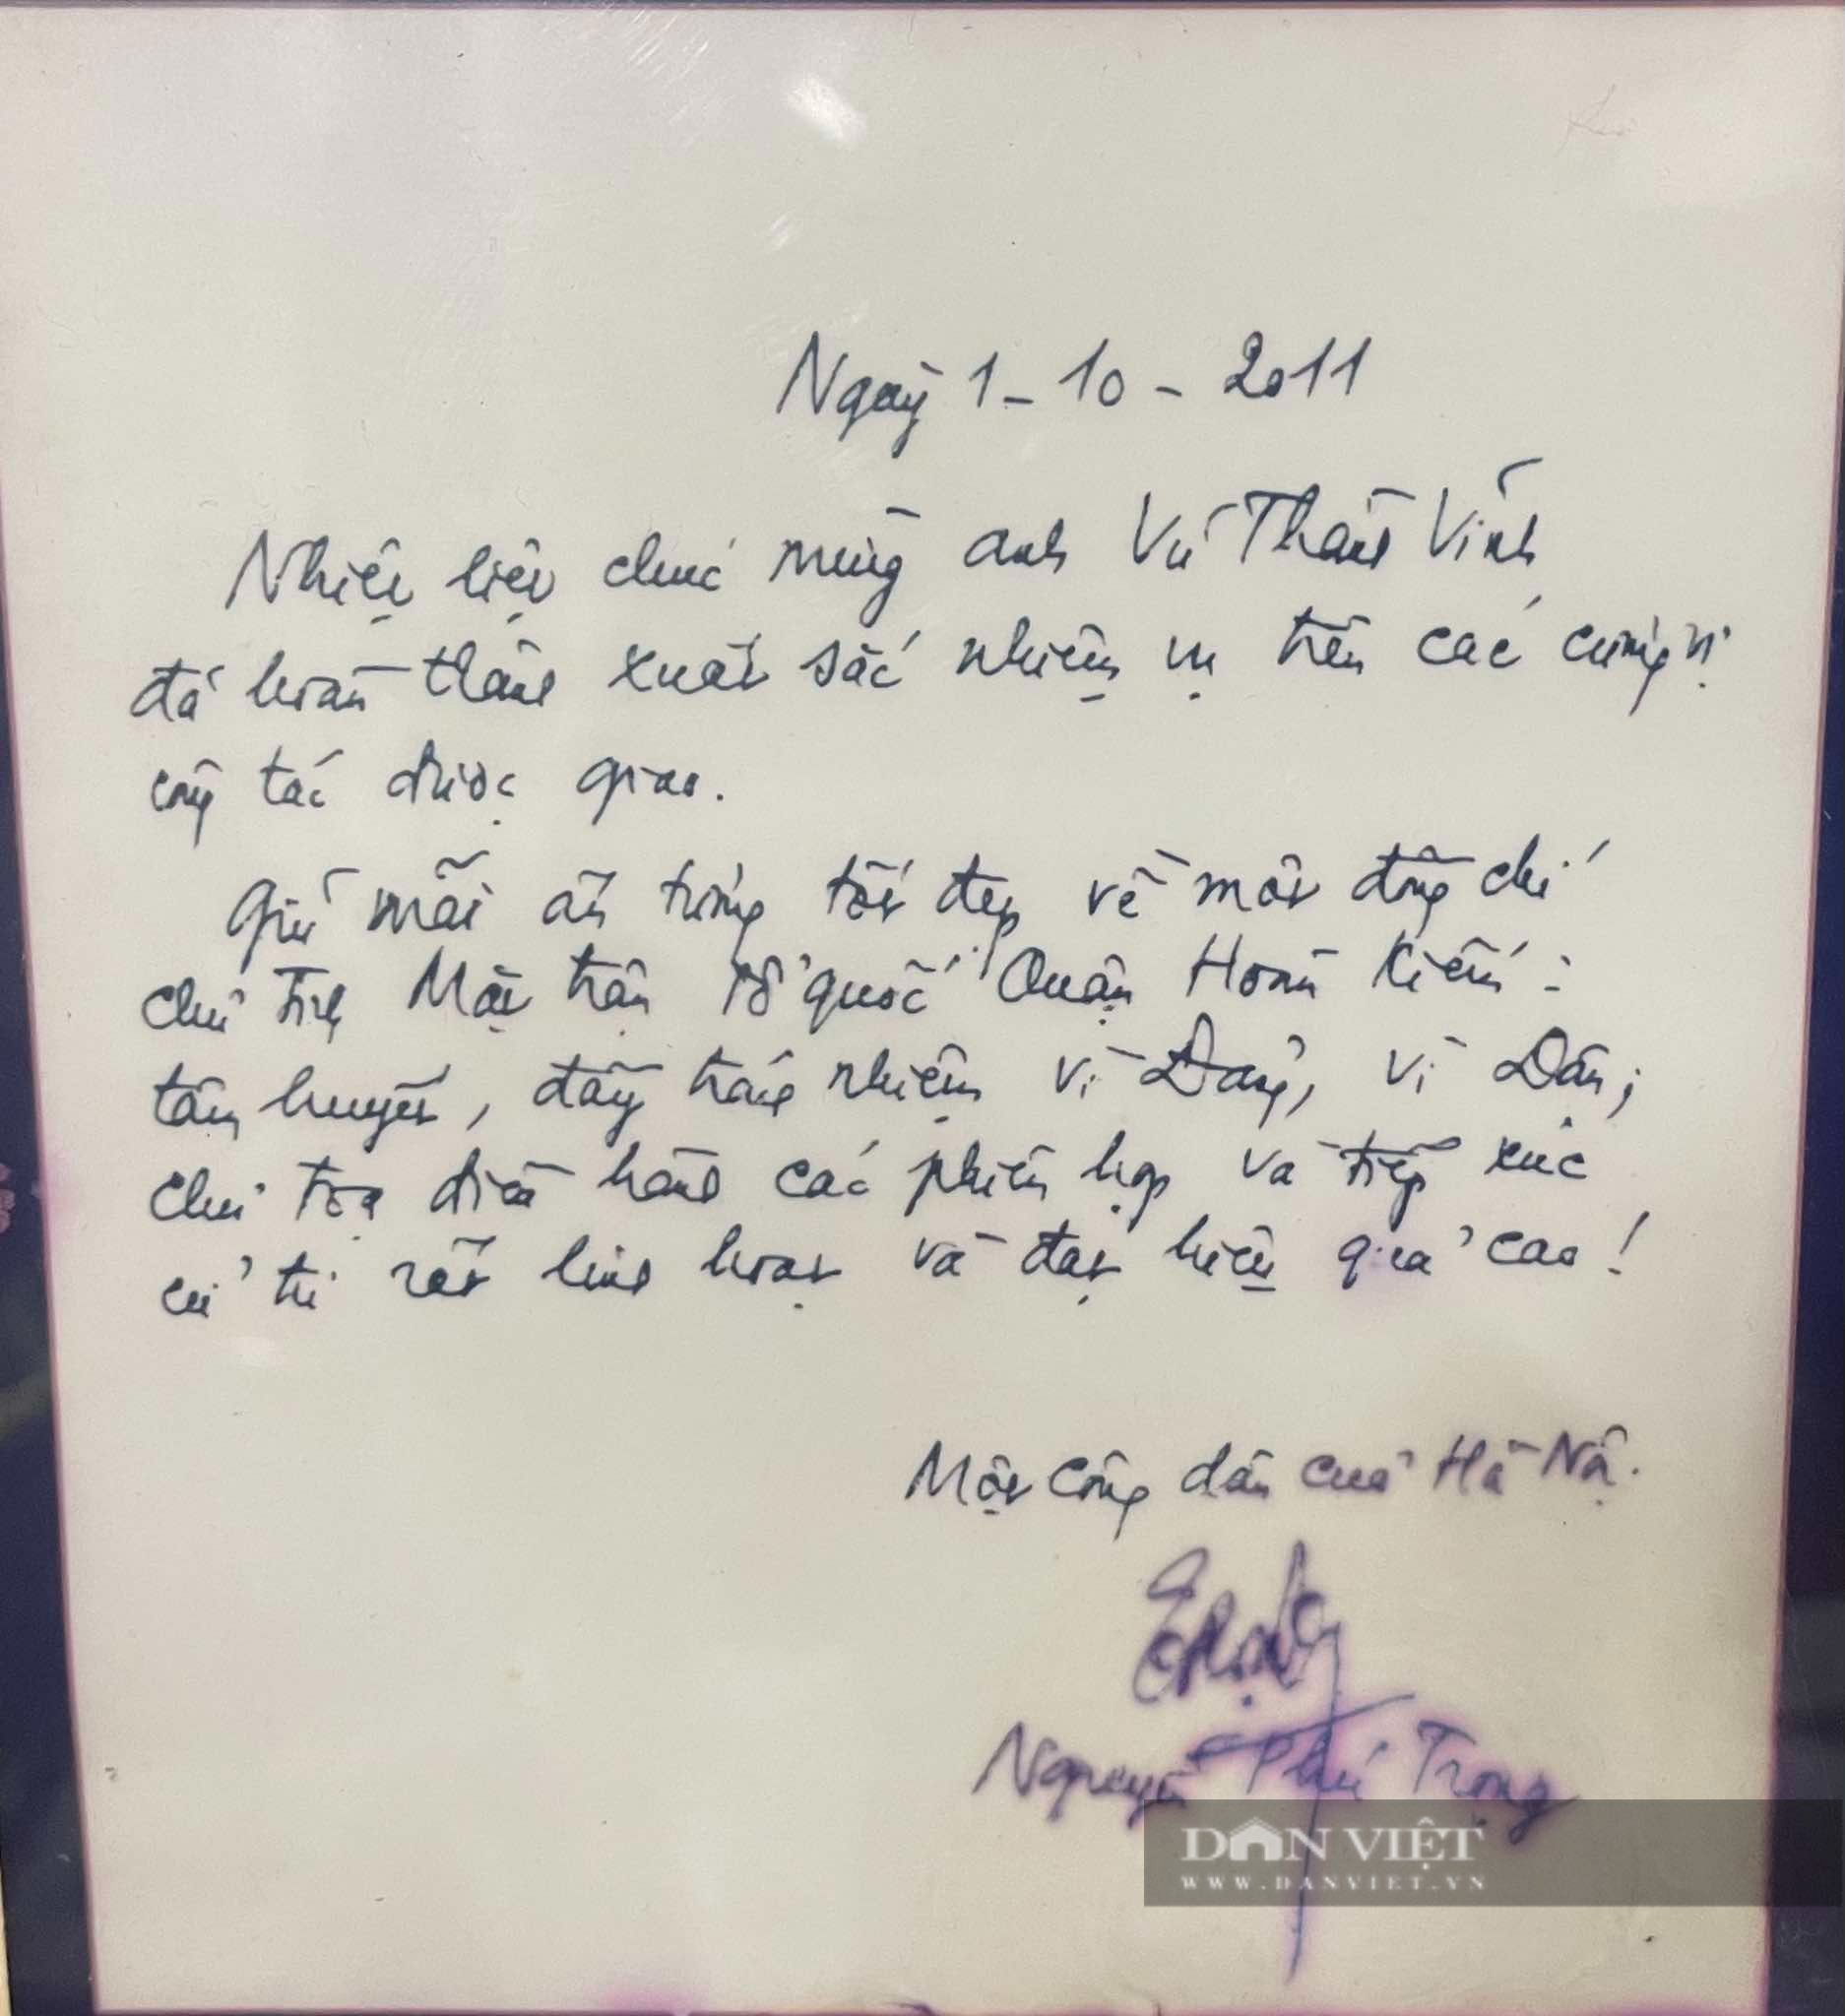 Ngày 1-10-2011
Nhiệt liệt chúc mừng anh Vũ Thành Vĩnh
đã hoàn thành xuất sắc nhiệm vụ trên các cương vị
công tác được giao.
Giữ mãi ấn tượng tốt đẹp về một đồng chí
chủ tịch Mặt trận Tổ quốc Quận Hoàn Kiếm:
tâm huyết, đầy trách nhiệm vì Đảng, vì Dân;
chủ tọa điều hành các phiên họp và tiếp xúc
cử tri rất linh hoạt và đạt hiệu quả cao!
Một công dân của Hà Nội.
Nguyễn Phú Trọng
DÂN VIỆT
WWW.DANVIET.VN